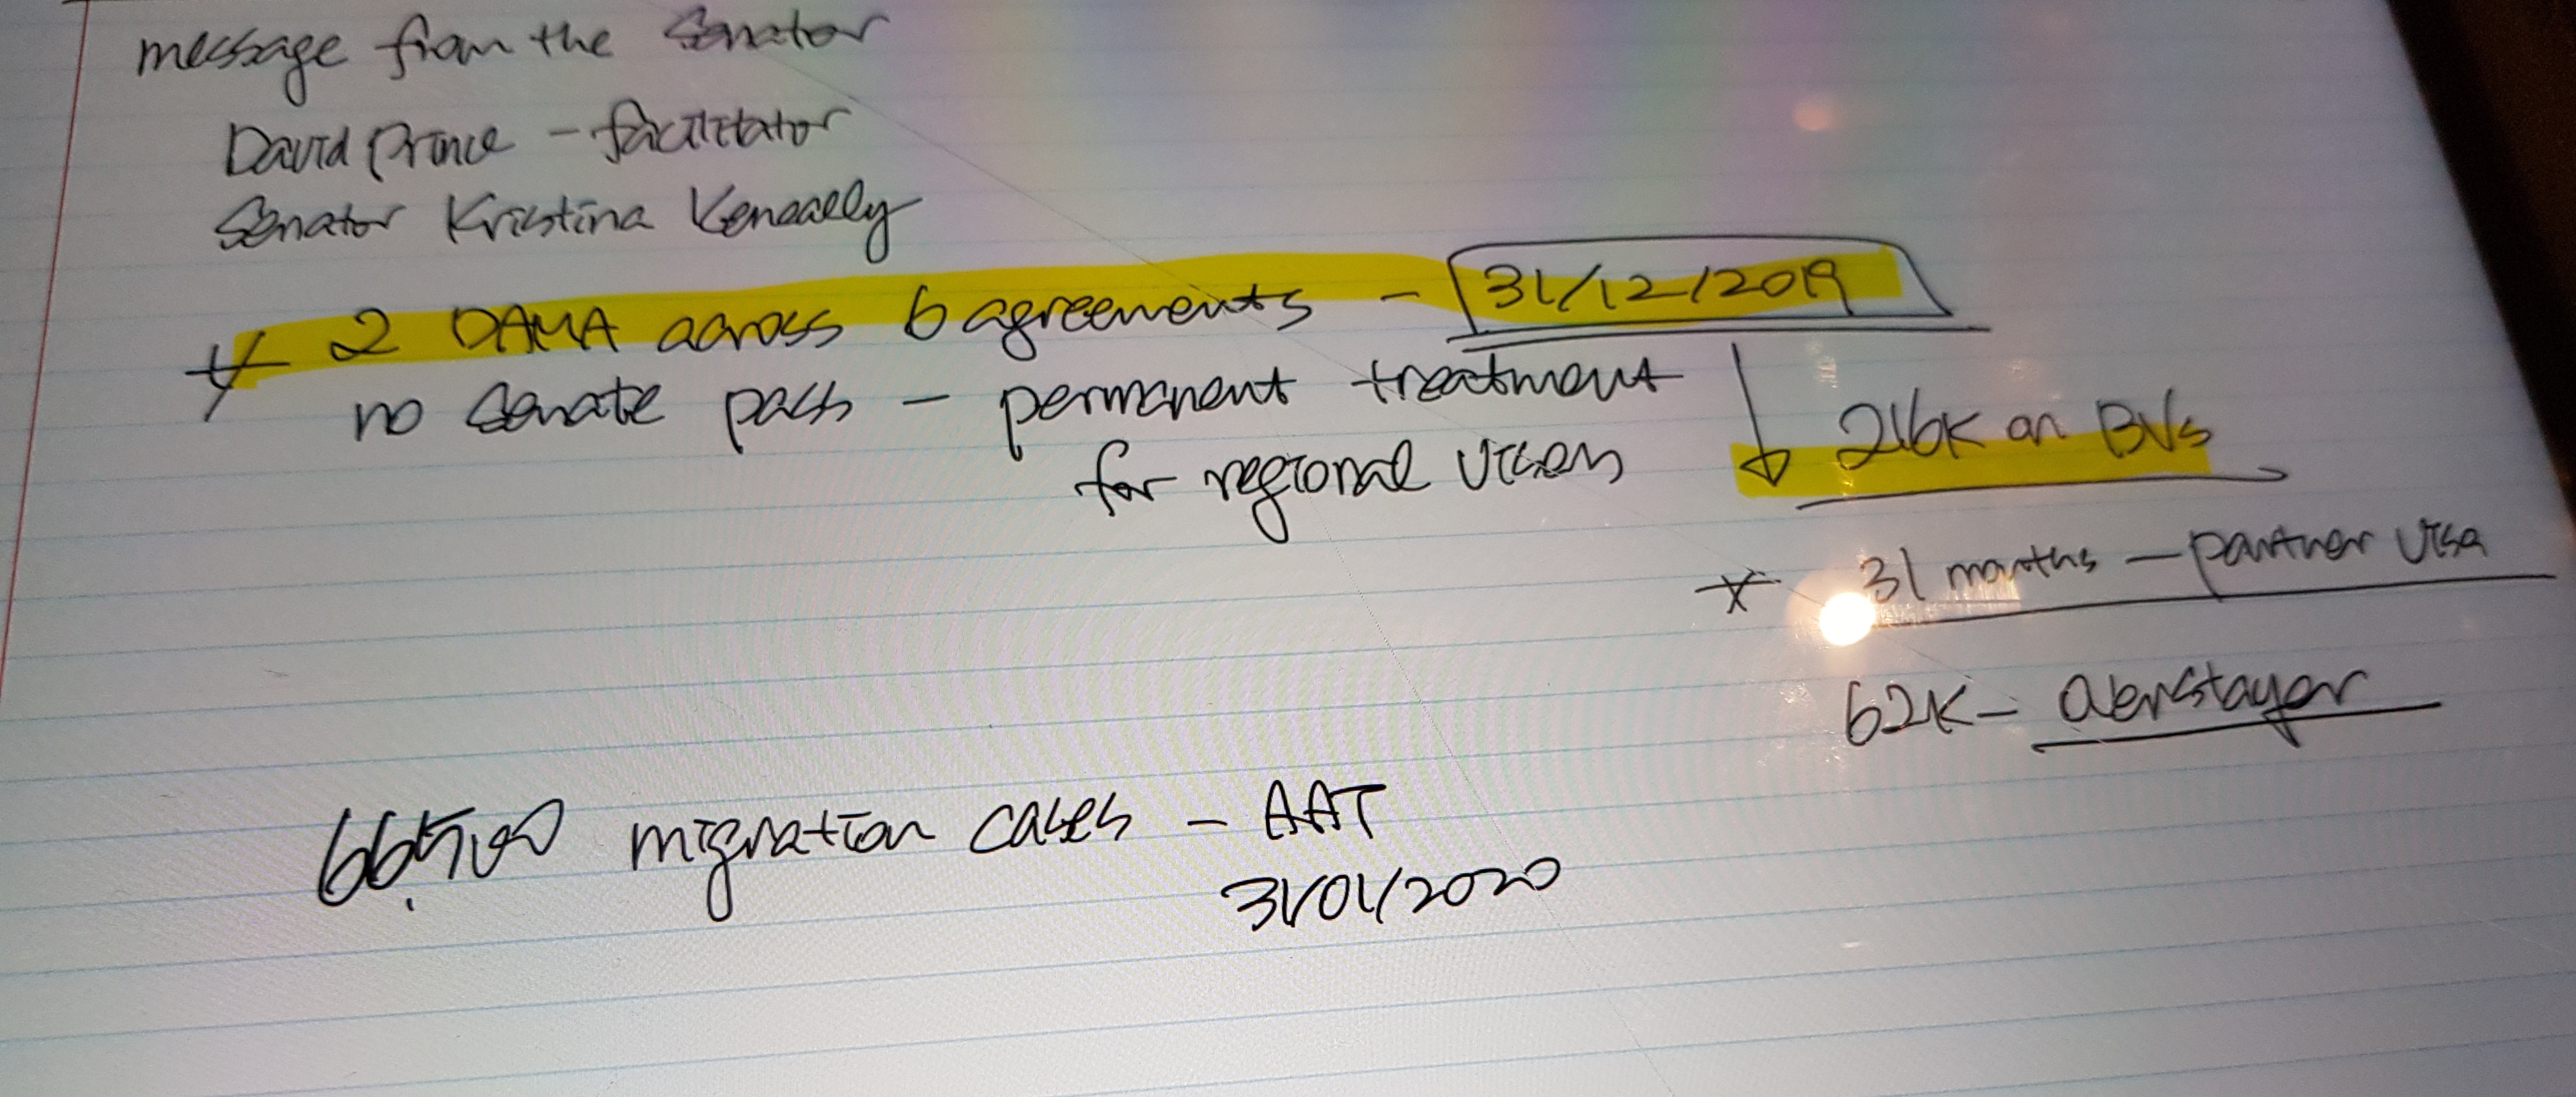 message from the Senator
David Prince - facilitator
Senator Kristina Keneally
* 2 DAMA across 6 agreements - 31/12/2019
no Senate pass - permanent treatment
for regional visas
216K on BVs
* 31 months - partner visa
62K - Overstayer
migration cases - AAT
31/01/2020